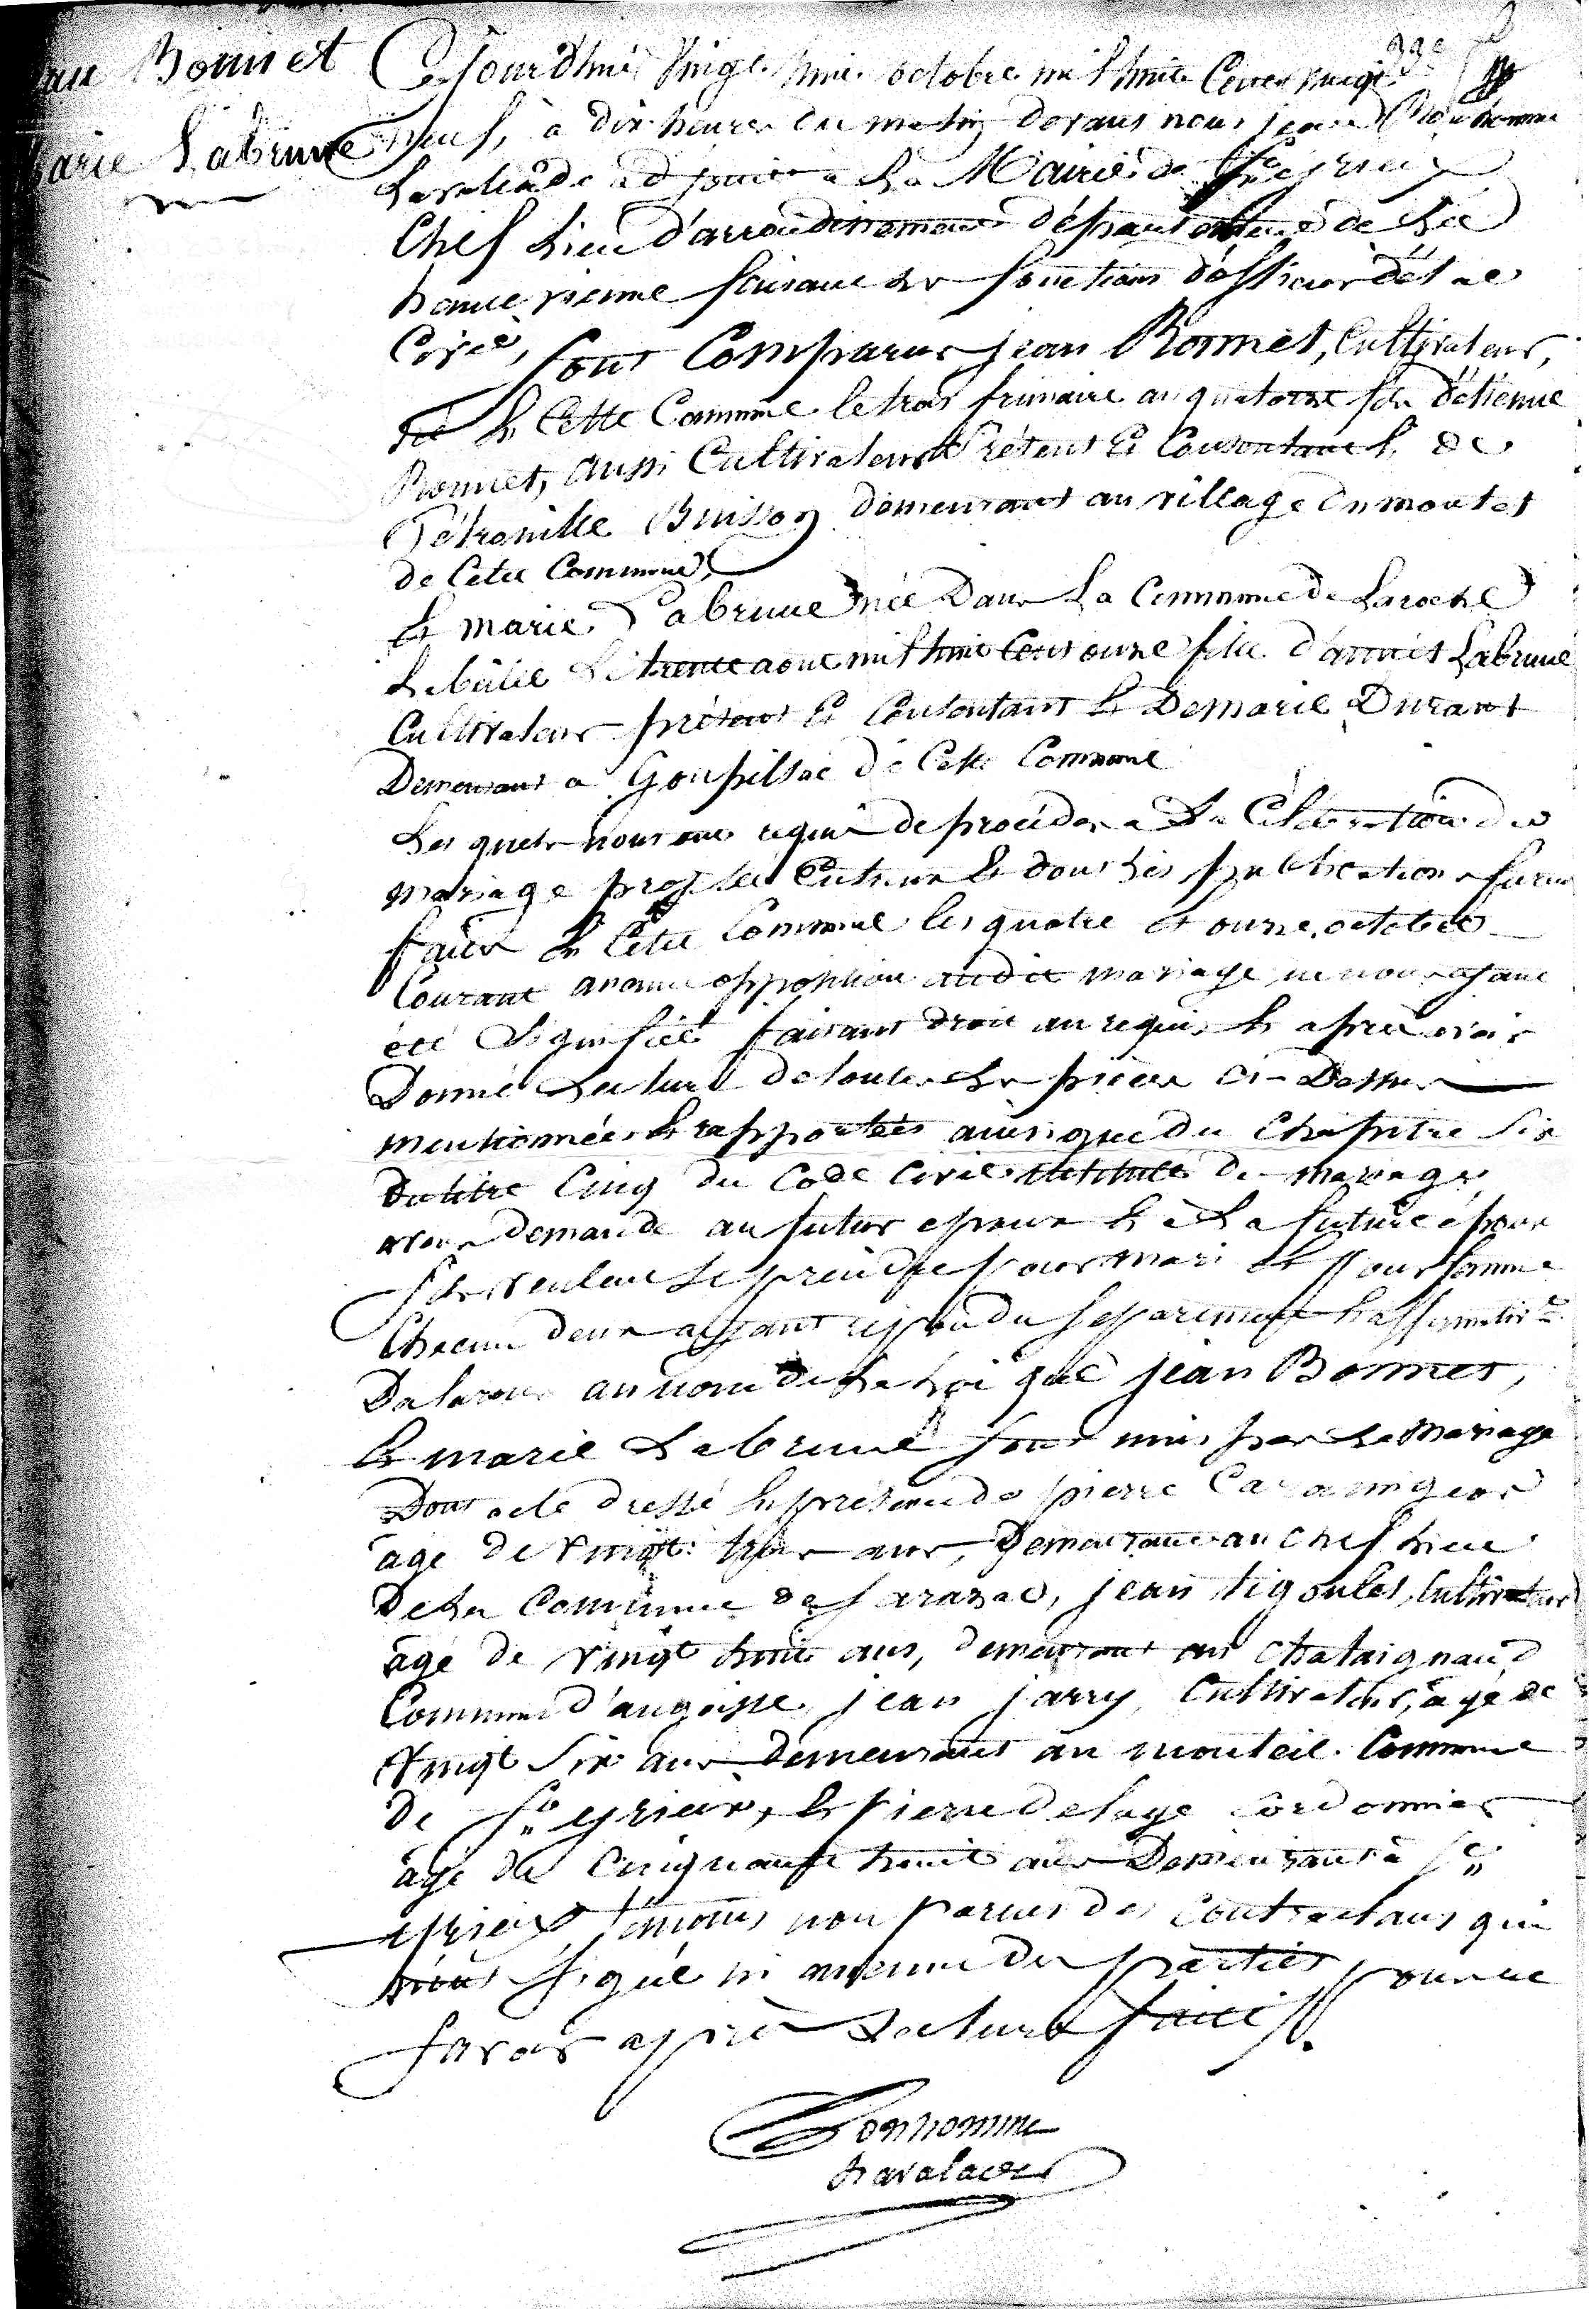 Bonnet
Labrune
Cejourd'hui vingt huit octobre mil huit cent vingt
neuf, à dix heures du matin devant nous jean Bonhomme
Lavalade adjoint à La Mairie de St yrieix
Chef Lieu d'arrondissement département de La
haute vienne faisant les fonctions d'officier d'état
Civil,
Sont Comparus jean Bonnet, Cultivateur,
né En Cette Commune le trois frimaire an quatorze fils d'étienne
Bonnet, aussi Cultivateur Présent Et Consentant Et de
Pétronille Buisson demeurant au village du montet
de Cette Commune,
Et marie Labrune née Dans La Commune de Laroche
Labeille Le trente aout mil huit Cent onze fille d'annet Labrune
Cultivateur présent Et Consentant Et De marie Durant
Demeurant a Goupillac de Cette Commune
Lesquels nous ont requis de procéder à La Célébration du
mariage projetté Entreux Et dont Les publications furent
faites En Cette Commune les quatre et onze octobre
Courant aucune opposition audit mariage ne nous ayant
été Signifiée faisant droit au requis Et après avoir
Donné Lecture de toutes Les pièces Ci-Dessus
mentionnées Et rapportées ainsi que du Chapitre Six
Du titre Cinq du Code Civil intitulé du mariage
avons demandé au futur epoux Et à La future épouse
S'ils veulent se prendre pour mari Et pour femme
Chacun deux ayant répondu Separement Et affirmativt
Declarons au nom de La Loi que jean Bonnet,
Et marie Labrune Sont unis par Le mariage
Dont acte dressé En présence de pierre
agé de vingt trois ans, Demeurant au chef Lieu
De La Commune de Sarazac, jean tigoulet, Cultivateur
agé de vingt huit ans, demeurant au Chataignaud
Commune d'angoisse, jean jarry, Cultivateur, agé de
vingt Six ans demeurant au monteil Commune
de St yrieix, Et pierre delage Cordonnier
agé de Cinquante huit ans Demeurant à St
yrieix temoins non parens des Contractans qui
n'ont Signé ni aucune des parties pour ne
Savoir après Lecture faite.
Bonhomme
Lavalade